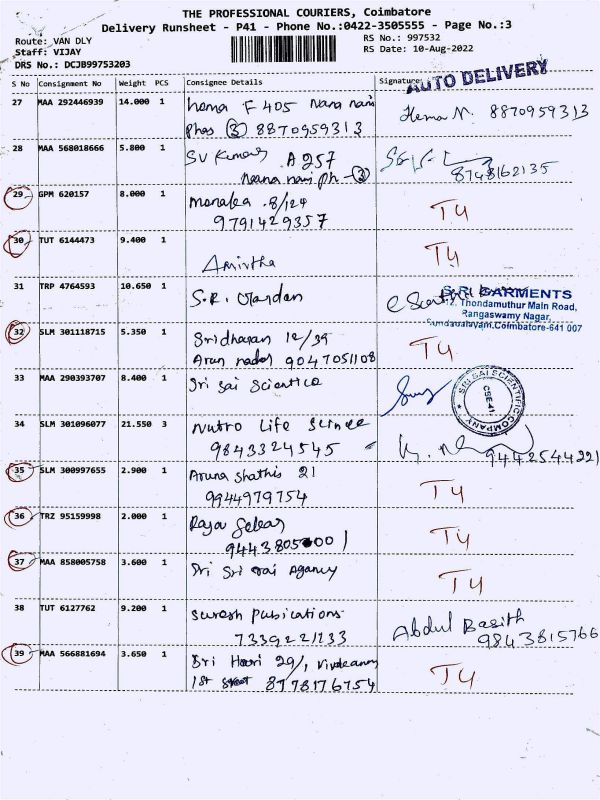 THE PROFESSIONAL COURIERS, Coimbatore
Delivery Runsheet - P41 - Phone No.:0422-3505555 - Page No.:3
Route: VAN DLY
Staff: VIJAY
DRS No.: DCJB99753203
RS No.: 997532
RS Date: 10-Aug-2022
S No Consignment No Weight PCS Consignee Details Signature
AUTO DELIVERY
27 MAA 292446939 14.000 1 hema F 405 Nana nani
phas (3) 8870959313
Hema N. 8870959313
28 MAA 568018666 5.800 1 SV Kumar A 257
Naana nani ph - (3)
8748162135
29 GPM 620157 8.000 1
8/124
9791429357
T4
30 TUT 6144473 9.400 1 Amirtha
T4
31 TRP 4764593 10.650 1 S.R.
S.R. GARMENTS
Thondamuthur Main Road,
Rangaswamy Nagar,
Sundapalayam, Coimbatore-641 007
32 SLM 301118715 5.350 1 Sridharan 12/39
Arun nadar 9047051108
T4
33 MAA 290393707 8.400 1 Sri Sai Scientica
SRI SAI SCIENTIFIC COMPANY
CBE-41
34 SLM 301096077 21.550 3 Nutro Life Scince
9843324545
9442544221
35 SLM 300997655 2.900 1 Aruna Shathis 21
9944979754
T4
36 TRZ 95159998 2.000 1 Raja Sekar
T4
37 MAA 858005758 3.600 1 Sri Sri Sai Agancy
T4
38 TUT 6127762 9.200 1 Suresh Pubications
7339221233
Abdul Basith
9843815766
39 MAA 566881694 3.650 1 Sri Hari 29/,
1st Street 8778176754
T4